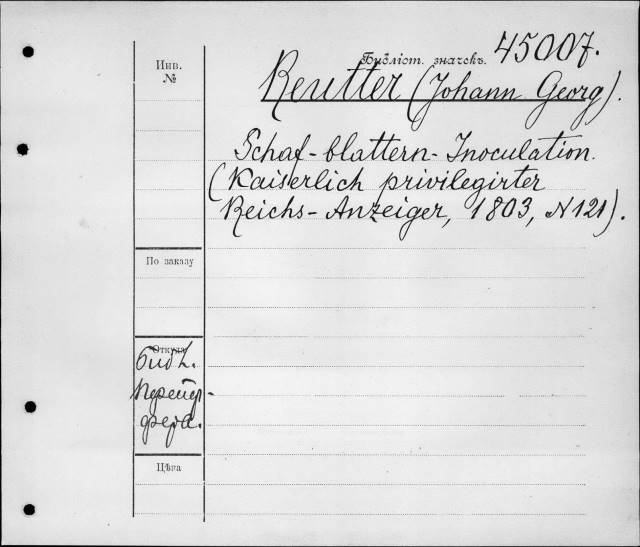 Инв.
№
Библіот. значекъ. 45007.
Reutter (Johann Georg).
Schaf-blattern-Inoculation.
(Kaiserlich privilegirter
Reichs-Anzeiger, 1803, N 121).
По заказу
Откуда
Библ.
Цѣна